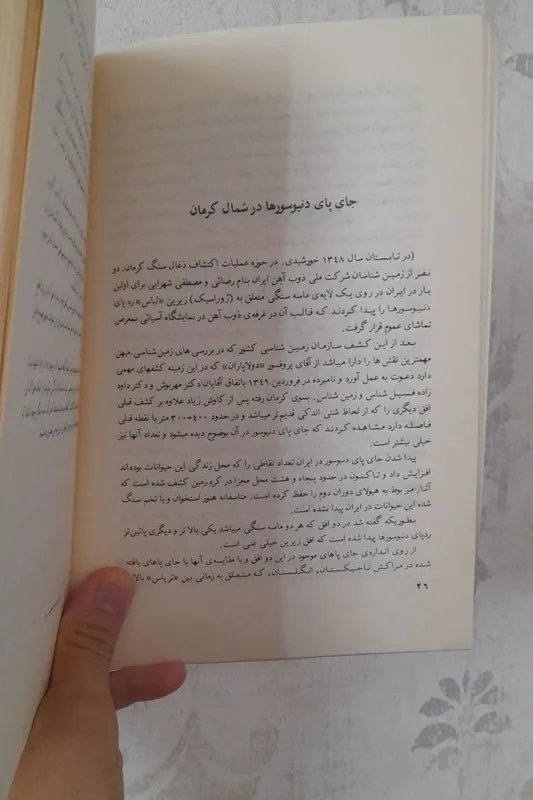 جای پای دنیوسورها در شمال کرمان
(در تابستان سال ۱۳۴۸ خورشیدی، در حوزه عملیات اکتشاف ذغال سنگ کرمان، دو
نفر از زمین شناسان شرکت ملی ذوب آهن ایران بنام رضائی و مصطفی شهرابی برای اولین
بار در ایران در روی یک لایه‌ی ماسه سنگی متعلق به (ژوراسیک) زیرین «لیاس» رد پای
دنیوسورها را پیدا کردند که قالب آن در غرفه‌ی ذوب آهن در نمایشگاه آسیائی بمعرض
تماشای عموم قرار گرفت.
بعد از این کشف سازمان زمین شناسی کشور که در بررسی های زمین شناسی میهن
مهمترین نقش ها را دارا میباشد از آقای پروفسور «دولاپاران» که در این زمینه کشفهای مهمی
دارد دعوت به عمل آورد و نامبرده در فروردین ۱۳۴۹ باتفاق آقایان دکتر مهرنوش و دکتر داود
زاده فسیل شناس و زمین شناس، بسوی کرمان رفته پس از کاوش زیاد علاوه بر کشف قبلی
افق دیگری را که از لحاظ شنی اندکی قدیم‌تر میباشد و در حدود ۴۰۰-۳۰۰ متر با نقطه قبلی
فاصله دارد مشاهده کردند که جای پای دنیوسور در آن بوضوح دیده میشود و تعداد آنها نیز
خیلی بیشتر است.
پیدا شدن جای پای دنیوسور در ایران تعداد نقاطی را که محل زندگی این حیوانات بوده‌اند
افزایش داد و تاکنون در حدود پنجاه و هشت محل مجزا در کره‌زمین کشف شده است که
آثار مربوط به هیولای دوران دوم را حفظ کرده است. متاسفانه هنوز استخوان و یا تخم سنگ
شده این حیوانات در ایران پیدا نشده است.
بطوریکه گفته شد در دو افق که هر دو ماسه سنگی میباشد یکی بالاتر و دیگری پائین‌تر
ردپای دنیوسورها پیدا شده است که افق زیرین خیلی غنی است.
از روی اندازه‌ی جای پاهای موجود در این دو افق و با مقایسه‌ی آنها با جای پاهای یافته
شده در مراکش تاجیکستان، انگلستان، که متعلق به زمانی بین «تریاس» بالا
۴۶